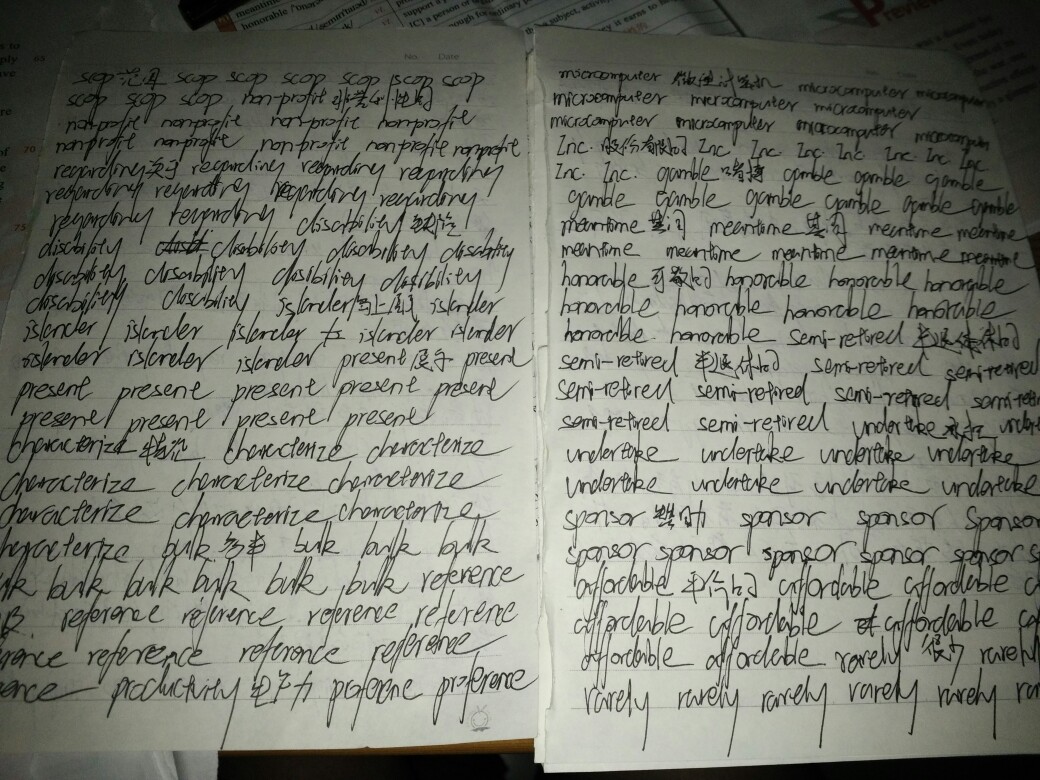 meantime
honorable
No. Date
scop 范围 scop scop scop scop scop scop
scop scop scop non-profit 非营利性的
non-profit non-profit non-profit non-profit
non-profit non-profit non-profit non-profit nonprofit
regarding 关于 regarding regarding regarding
regarding regarding regarding regarding
regarding regarding discability
discability discability discability
discability discability
discability discability islander islander
islander islander islander islander islander
islander islander islander present 展示 present
present present present present present
present present present present
characterize 特征 characterize characterize
characterize characterize characterize
characterize characterize characterize
characterize bulk bulk bulk bulk
bulk bulk bulk bulk bulk reference
reference reference reference reference
reference reference reference
productivity 生产力
microcomputer 微型计算机 microcomputer microcomputer
microcomputer microcomputer microcomputer
microcomputer microcomputer microcomputer microcomputer
Inc. 股份有限公司 Inc. Inc. Inc. Inc. Inc. Inc
Inc. Inc. gamble 赌博 gamble gamble gamble
gamble gamble gamble gamble gamble gamble
meantime 其间 meantime 其间 meantime meantime
meantime meantime meantime meantime
honorable 可敬的 honorable honorable honorable
honorable honorable honorable honorable
honorable honorable semi-retired 半退休的
semi-retired 半退休的 semi-retired semi-retired
semi-retired semi-retired semi-retired semi-retir
semi-retired semi-retired undertake 承担 undert
undertake undertake undertake undertake
undertake undertake undertake undertake
sponsor 赞助 sponsor sponsor sponsor
sponsor sponsor sponsor sponsor sponsor s
affordable 平价的 affordable affordable
affordable affordable affordable
affordable affordable rarely 很少 rarely
rarely rarely rarely rarely rarely ra